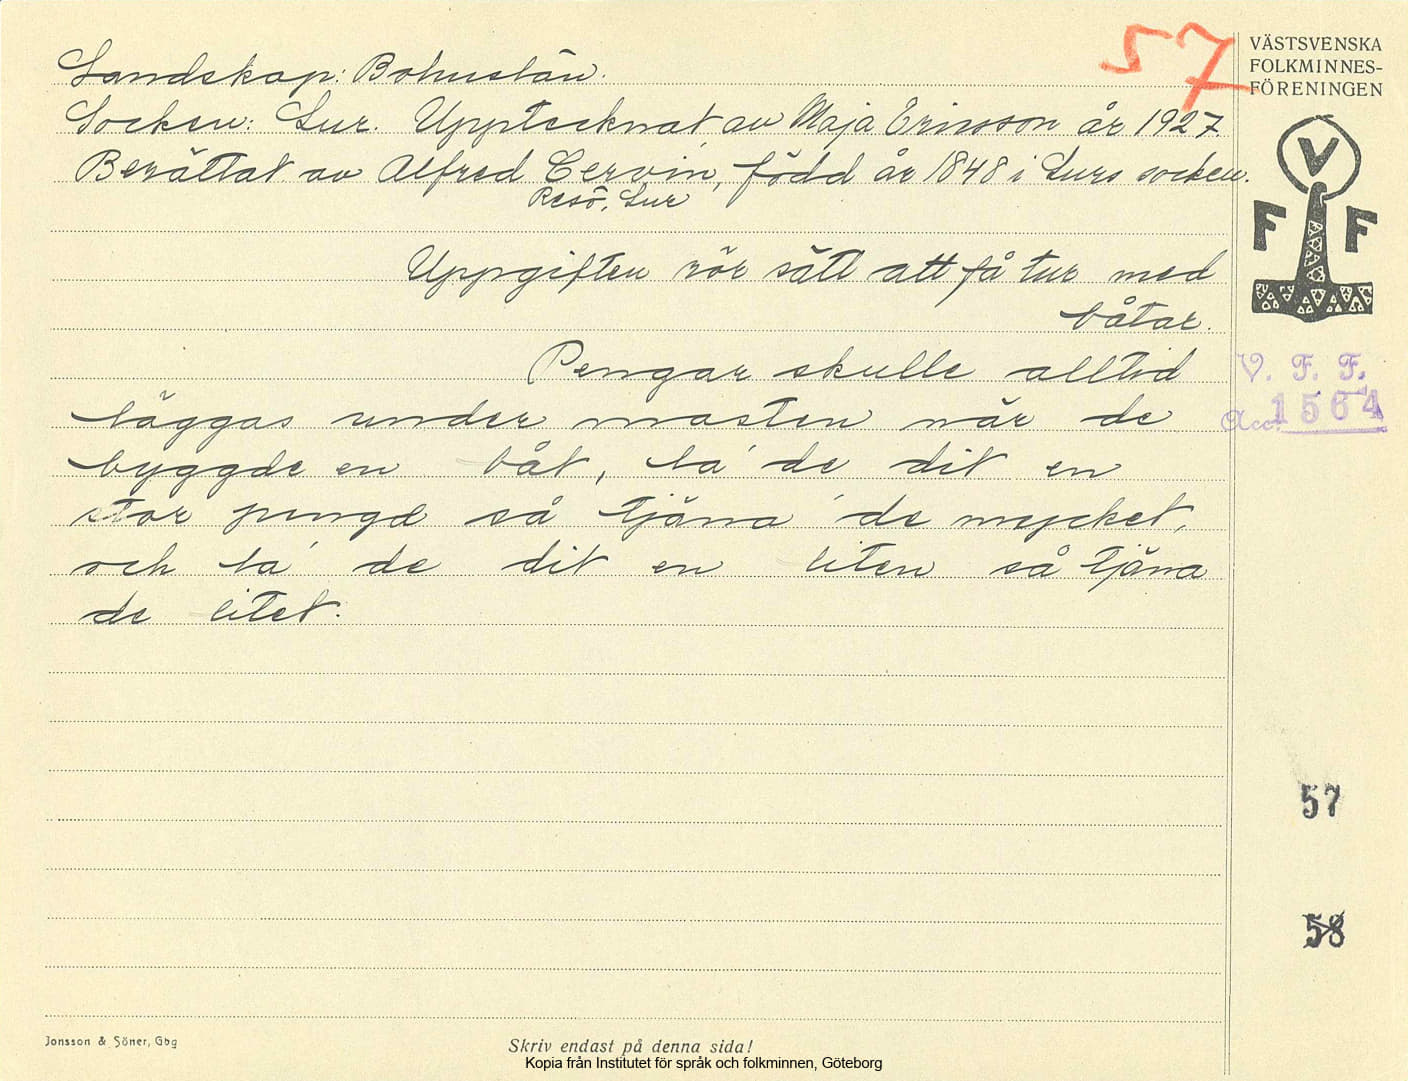 57
Landskap: Bohuslän.
Socken: Lur. Upptecknat av Maja Ericsson år 1927
Berättat av Alfred Cervin, född år 1848 i Lurs socken.
Resö, Lur
Uppgiften rör sätt att få tur med
båtar.
Pengar skulle alltid
läggas under masten när de
byggde en båt, la' de dit en
stor pengd så tjäna' de mycket,
och la' de dit en liten så tjäna
de litet.
VÄSTSVENSKA
FOLKMINNES-
FÖRENINGEN
V
F F
V. F. F.
Acc. 1564
57
58
Jonsson & Söner, Gbg
Skriv endast på denna sida!
Kopia från Institutet för språk och folkminnen, Göteborg